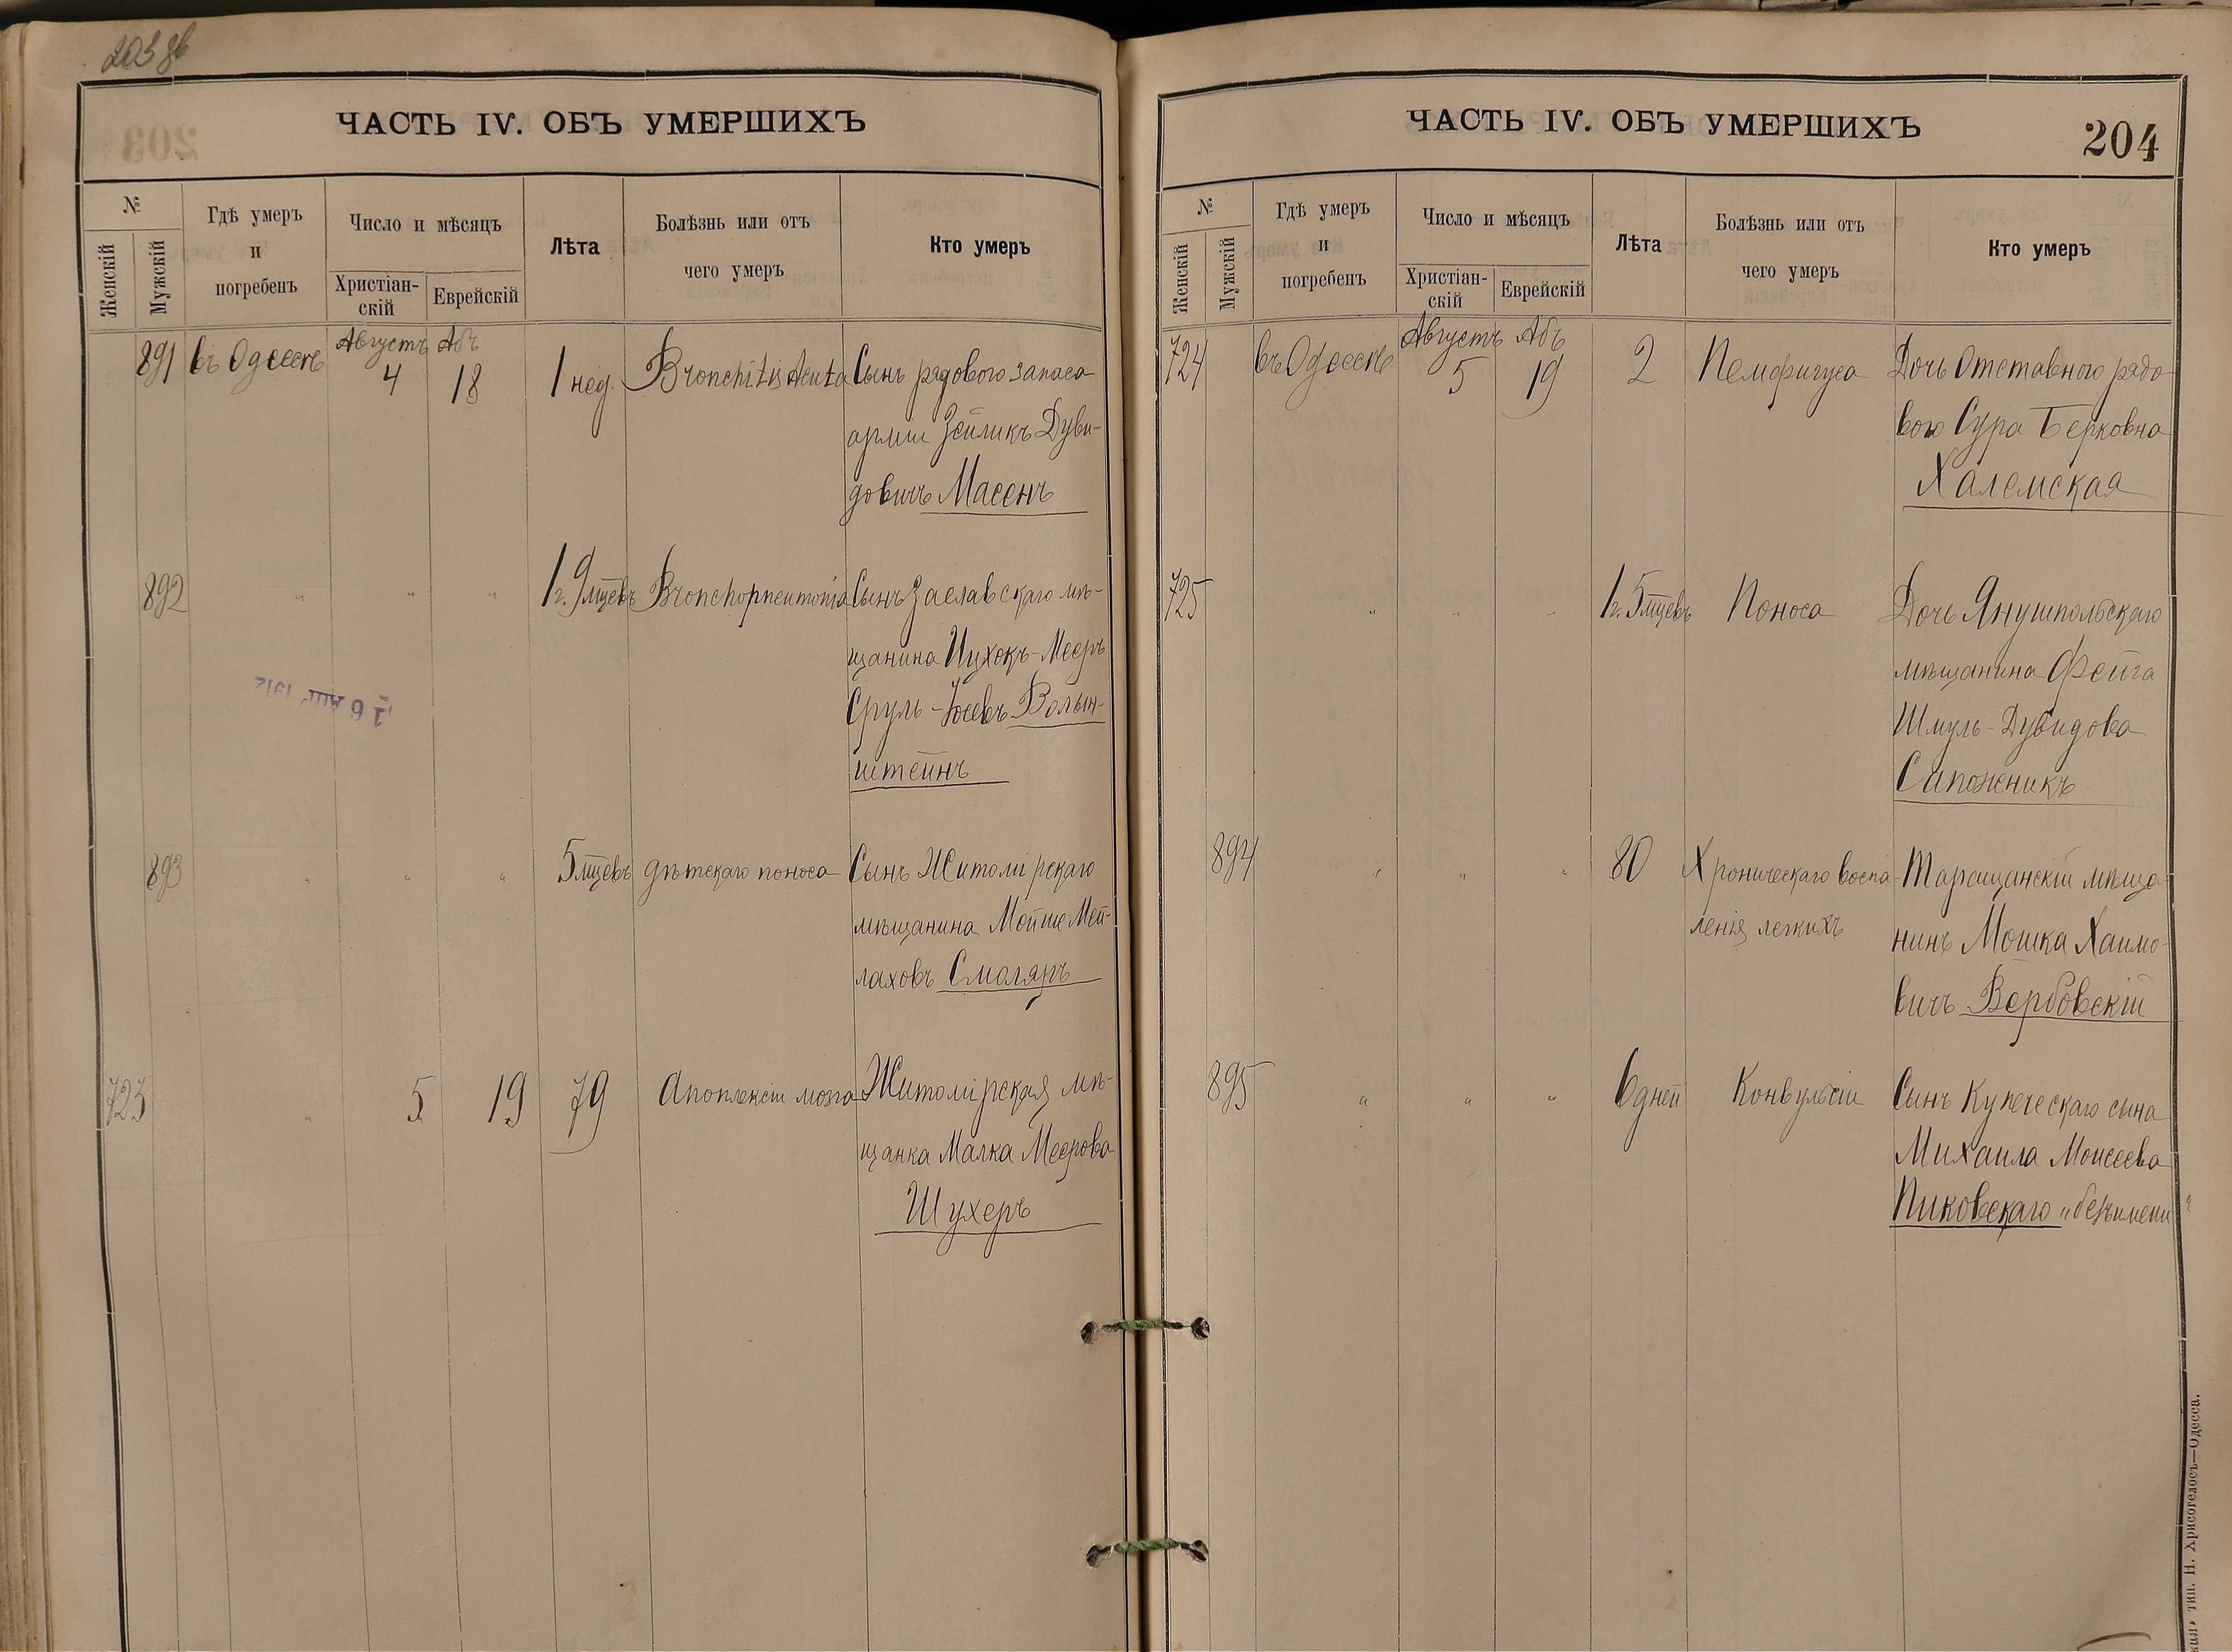 203 об
ЧАСТЬ IV. ОБЪ УМЕРШИХЪ
№
Женскій
Мужскій
Гдѣ умеръ
и
погребенъ
Число и мѣсяцъ
Христіан-
скій
Еврейскій
Лѣта
Болѣзнь или отъ
чего умеръ
Кто умеръ
891 въ Одессѣ Августъ 4 Абъ 18 1 нед. Bronchitis Acuta Сынъ рядового запаса
арміи Зейликъ Дуви-
довичъ Масенъ
892 " " " 1 г. 9 мцевъ Bronchopneumonia Сынъ Заславскаго мѣ-
щанина Ицхокъ-Мееръ
Сруль-Іосевъ Волын-
штейнъ
893 " " " 5 мцевъ дѣтскаго поноса Сынъ Житомірскаго
мѣщанина Мойше Мей-
лаховъ Смоляръ
723 " 5 19 79 Апоплексіи мозга Житомірская мѣ-
щанка Малка Меерова
Шухеръ
ЧАСТЬ IV. ОБЪ УМЕРШИХЪ
204
№
Женскій
Мужскій
Гдѣ умеръ
и
погребенъ
Число и мѣсяцъ
Христіан-
скій
Еврейскій
Лѣта
Болѣзнь или отъ
чего умеръ
Кто умеръ
724 въ Одессѣ Августъ 5 Абъ 19 2 Пемфигуса Дочь Отставного рядо-
вого Сура Берковна
Халемская
725 " " " 1 г. 5 мцевъ Поноса Дочь Янушпольскаго
мѣщанина Фейга
Шмуль-Дувидова
Сапожникъ
894 " " " 80 Хроническаго воспа- Таращанскій мѣща-
ленія легкихъ
нинъ Мошка Хаимо-
вичъ Вербовскій
895 " " " 6 дней Конвульсіи Сынъ Купеческаго сына
Михаила Моисеева
Пиковскаго "безъимени"
тип. Н. Хрисогелосъ—Одесса.